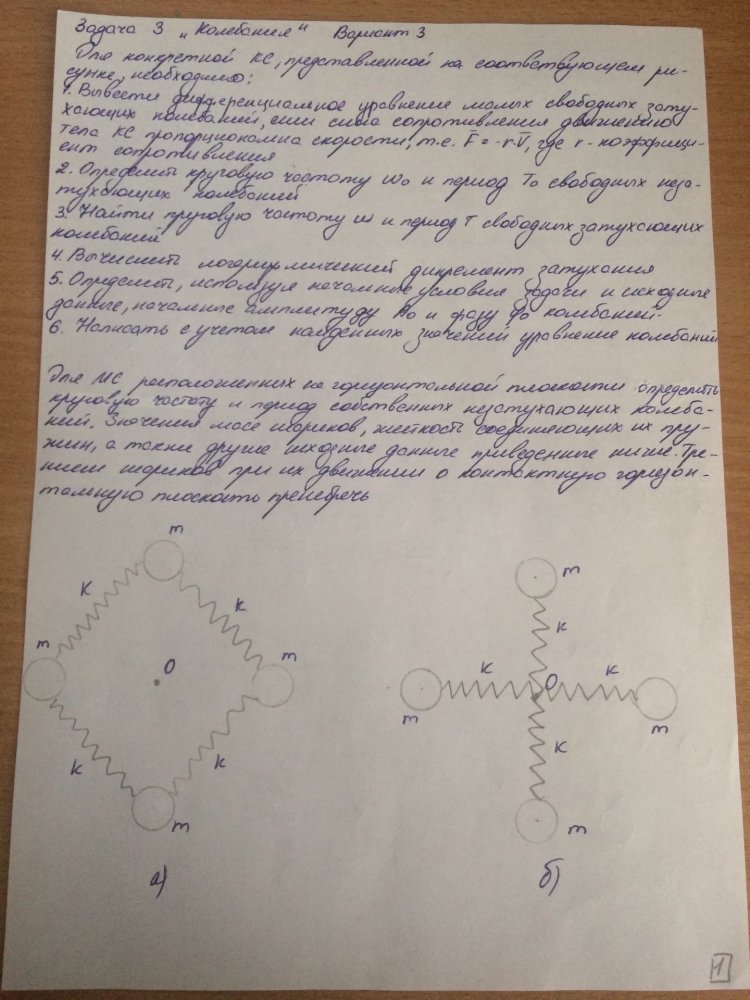 Задача 3 „Колебания" Вариант 3
Для конкретной КС, представленной на соответствующем ри-
сунке, необходимо:
1. Вывести дифференциальное уравнение малых свободных зату-
хающих колебаний, если сила сопротивления движению
тела КС пропорциональна скорости, т.е. F̄ = -r·V̄, где r - коэффици-
ент сопротивления
2. Определить круговую частоту ω₀ и период T₀ свободных неза-
тухающих колебаний
3. Найти круговую частоту ω и период T свободных затухающих
колебаний
4. Вычислить логарифмический декремент затухания
5. Определить, используя начальные условия задачи и исходные
данные, начальные амплитуду A₀ и фазу φ₀ колебаний.
6. Написать с учетом найденных значений уравнение колебаний
Для МС расположенных на горизонтальной плоскости определить
круговую частоту и период собственных незатухающих колеба-
ний. Значения масс шариков, жесткость соединяющих их пру-
жин, а также другие исходные данные приведенные ниже. Тре-
нием шариков при их движении о контактную горизон-
тальную плоскость пренебречь
m
K
K
m
O
m
K
K
m
а)
m
K
K
O
K
m
m
K
m
б)
1